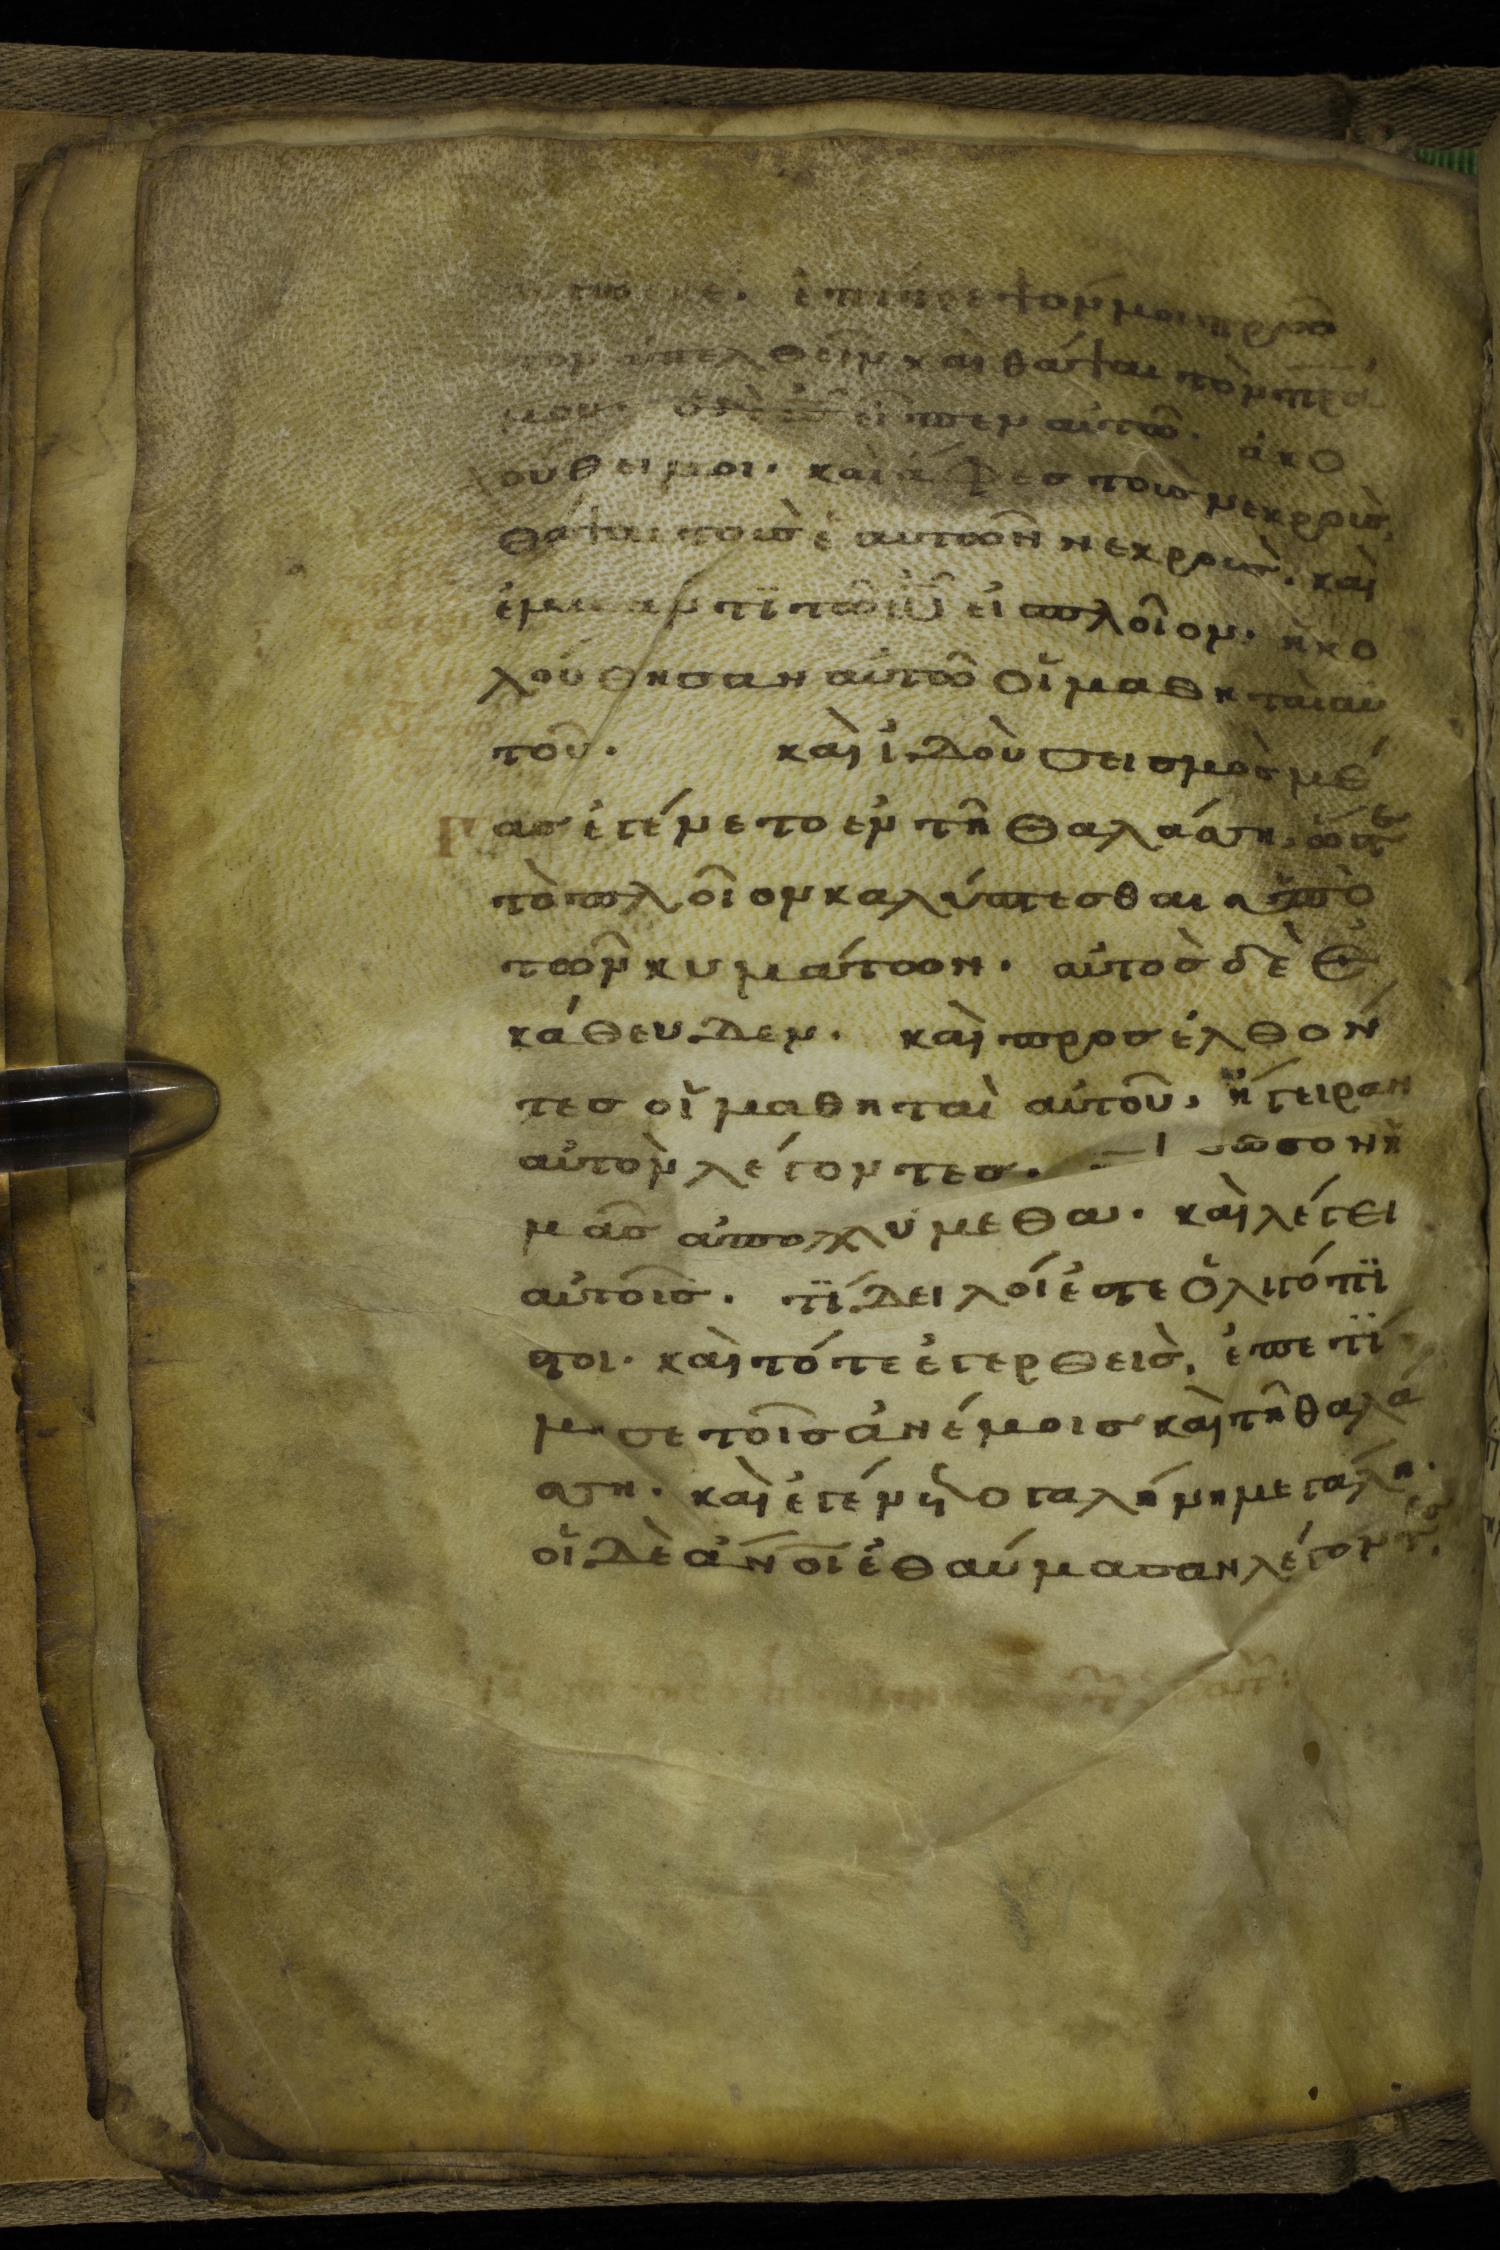 ἐπίτρεψόν μοι πρῶ
τον ἀπελθεῖν καὶ θάψαι τὸν πρα
μου· ὁ δὲ ις εἶπεν αὐτῶ· ἀκο
ούθει μοι· καὶ ἄφες τοὺς νεκροὺς,
θάψαι τοὺς ἑαυτῶν νεκρούς· καὶ
ἐμβάντϊ τῶ ιυ εἰ πλοῖον· ἠκο
λούθησαν αὐτῶ οἱ μαθηταὶ αὐ
τοῦ· καὶ ἰδοὺ σεισμὸς μέ
ας ἐγένετο ἐν τῆ θαλάσση, ὥστε
τὸ πλοῖον καλύπτεσθαι ὑπὸ
τῶν κυμάτων· αὐτὸς δὲ ἐ
κάθευδεν· καὶ προσελθόν
τες οἱ μαθηταὶ αὐτοῦ, ἤγειραν
αὐτὸν λέγοντες· σῶσον ἡ
μᾶς ἀπολλύμεθα· καὶ λέγει
αὐτοῖς· τΐ δειλοί ἐστε ὀλιγόπϊ
στοι· καὶ τότε ἐγερθεὶς, ἐπετΐ
μησε τοῖς ἀνέμοις καὶ τῆ θαλά
σση· καὶ ἐγένετο γαλήνη μεγάλη·
οἱ δὲ ἄνοι ἐθαύμασαν λέγοντες,